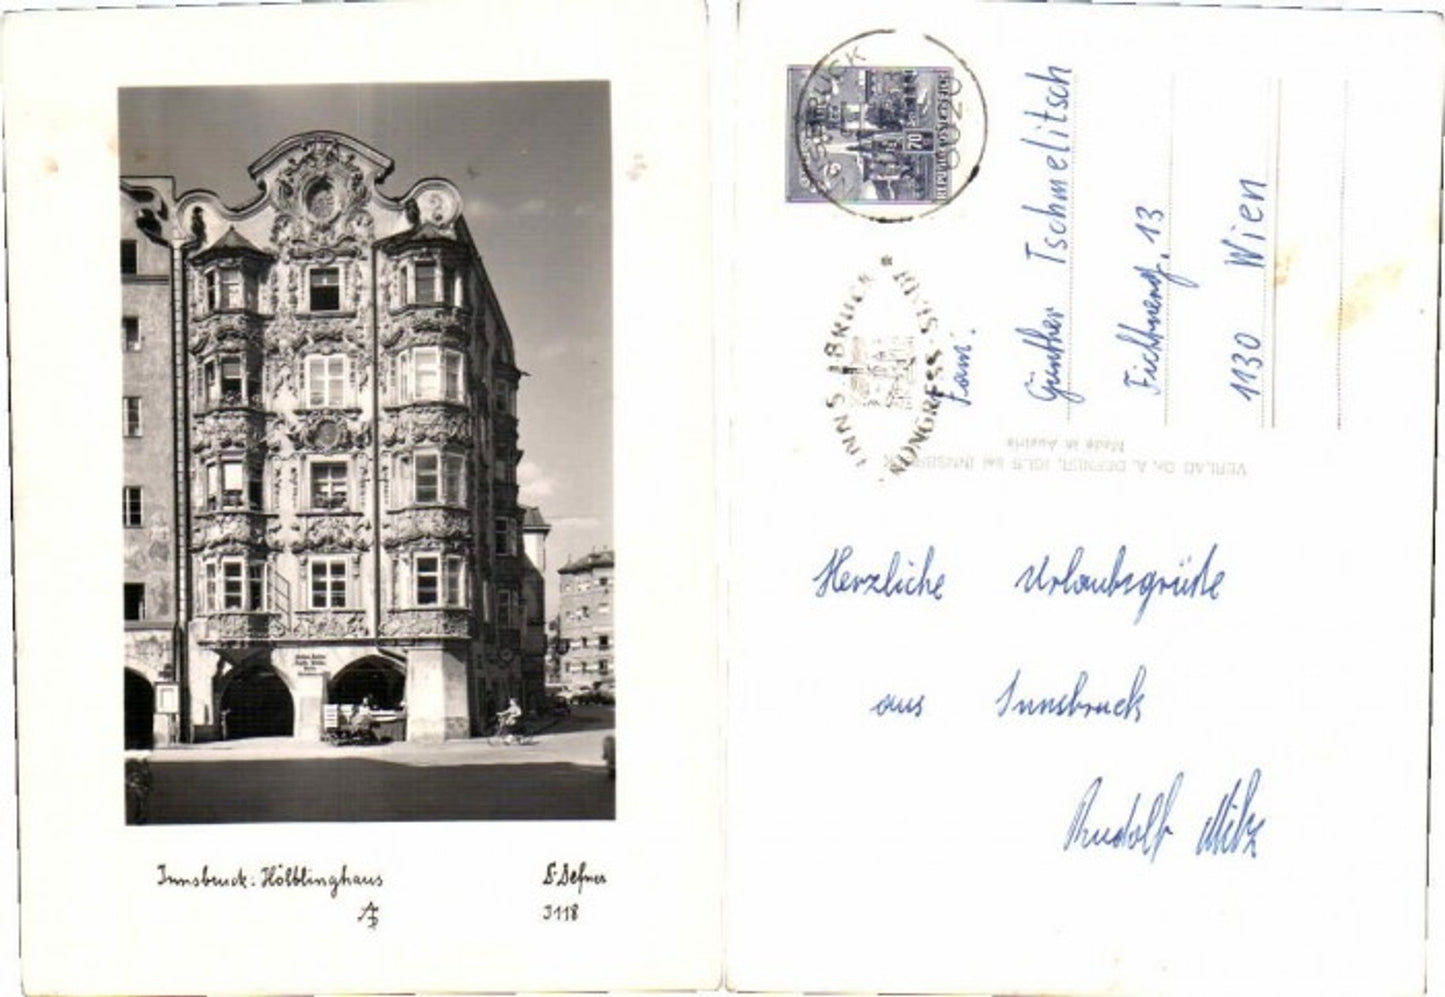 Innsbruck: Hölblinghaus
D. Defner
3118
INNSBRUCK
6020
REPUBLIK ÖSTERREICH
70
INNSBRUCK * KONGRESS-
Fam.
Günther Tschmelitsch
13
1130 Wien
VERLAG Dr. A. DEFNER, IGLS bei INNSBRUCK
Made in Austria
Herzliche Urlaubsgrüße
aus Innsbruck
Rudolf